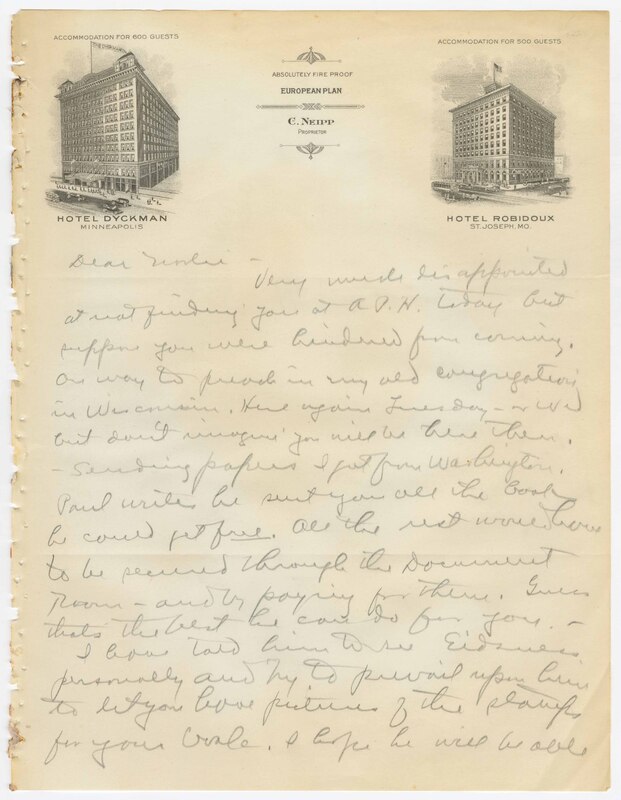 ACCOMMODATION FOR 600 GUESTS
HOTEL DYCKMAN
MINNEAPOLIS
ABSOLUTELY FIRE PROOF
EUROPEAN PLAN
C. NEIPP
PROPRIETOR
ACCOMMODATION FOR 500 GUESTS
HOTEL ROBIDOUX
ST. JOSEPH, MO.
Dear
Very much disappointed
at not finding you at A.P.H. today but
suppose you were hindered from coming.
On way to preach in my old congregation
in Wisconsin. Here again Tuesday – or Wed
but don't imagine you will be here then.
– Sending papers I got from Washington.
Paul writes he sent you all the books
he could get free. All the rest would have
to be secured through the Document
Room – and by paying for them. Guess
that's the best he can do for you. –
I have told him to see Eidsness
personally and try to prevail upon him
to let you have pictures of the stamps
for your book. I hope he will be able